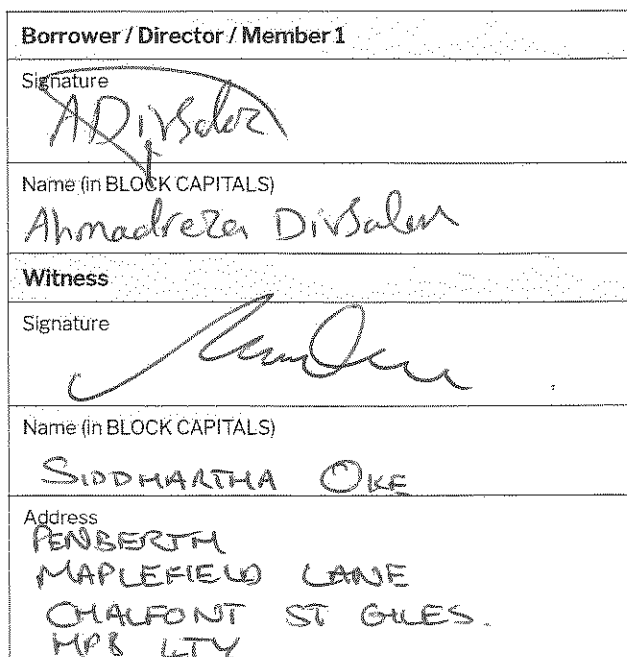 Borrower / Director / Member 1
Signature
ADivsalar
Name (in BLOCK CAPITALS)
Ahmadreza Divsalar
Witness
Signature
Name (in BLOCK CAPITALS)
SIDDHARTHA OKE
Address
PENBERTH
MAPLEFIELD LANE
CHALFONT ST GILES.
HP8 4TY